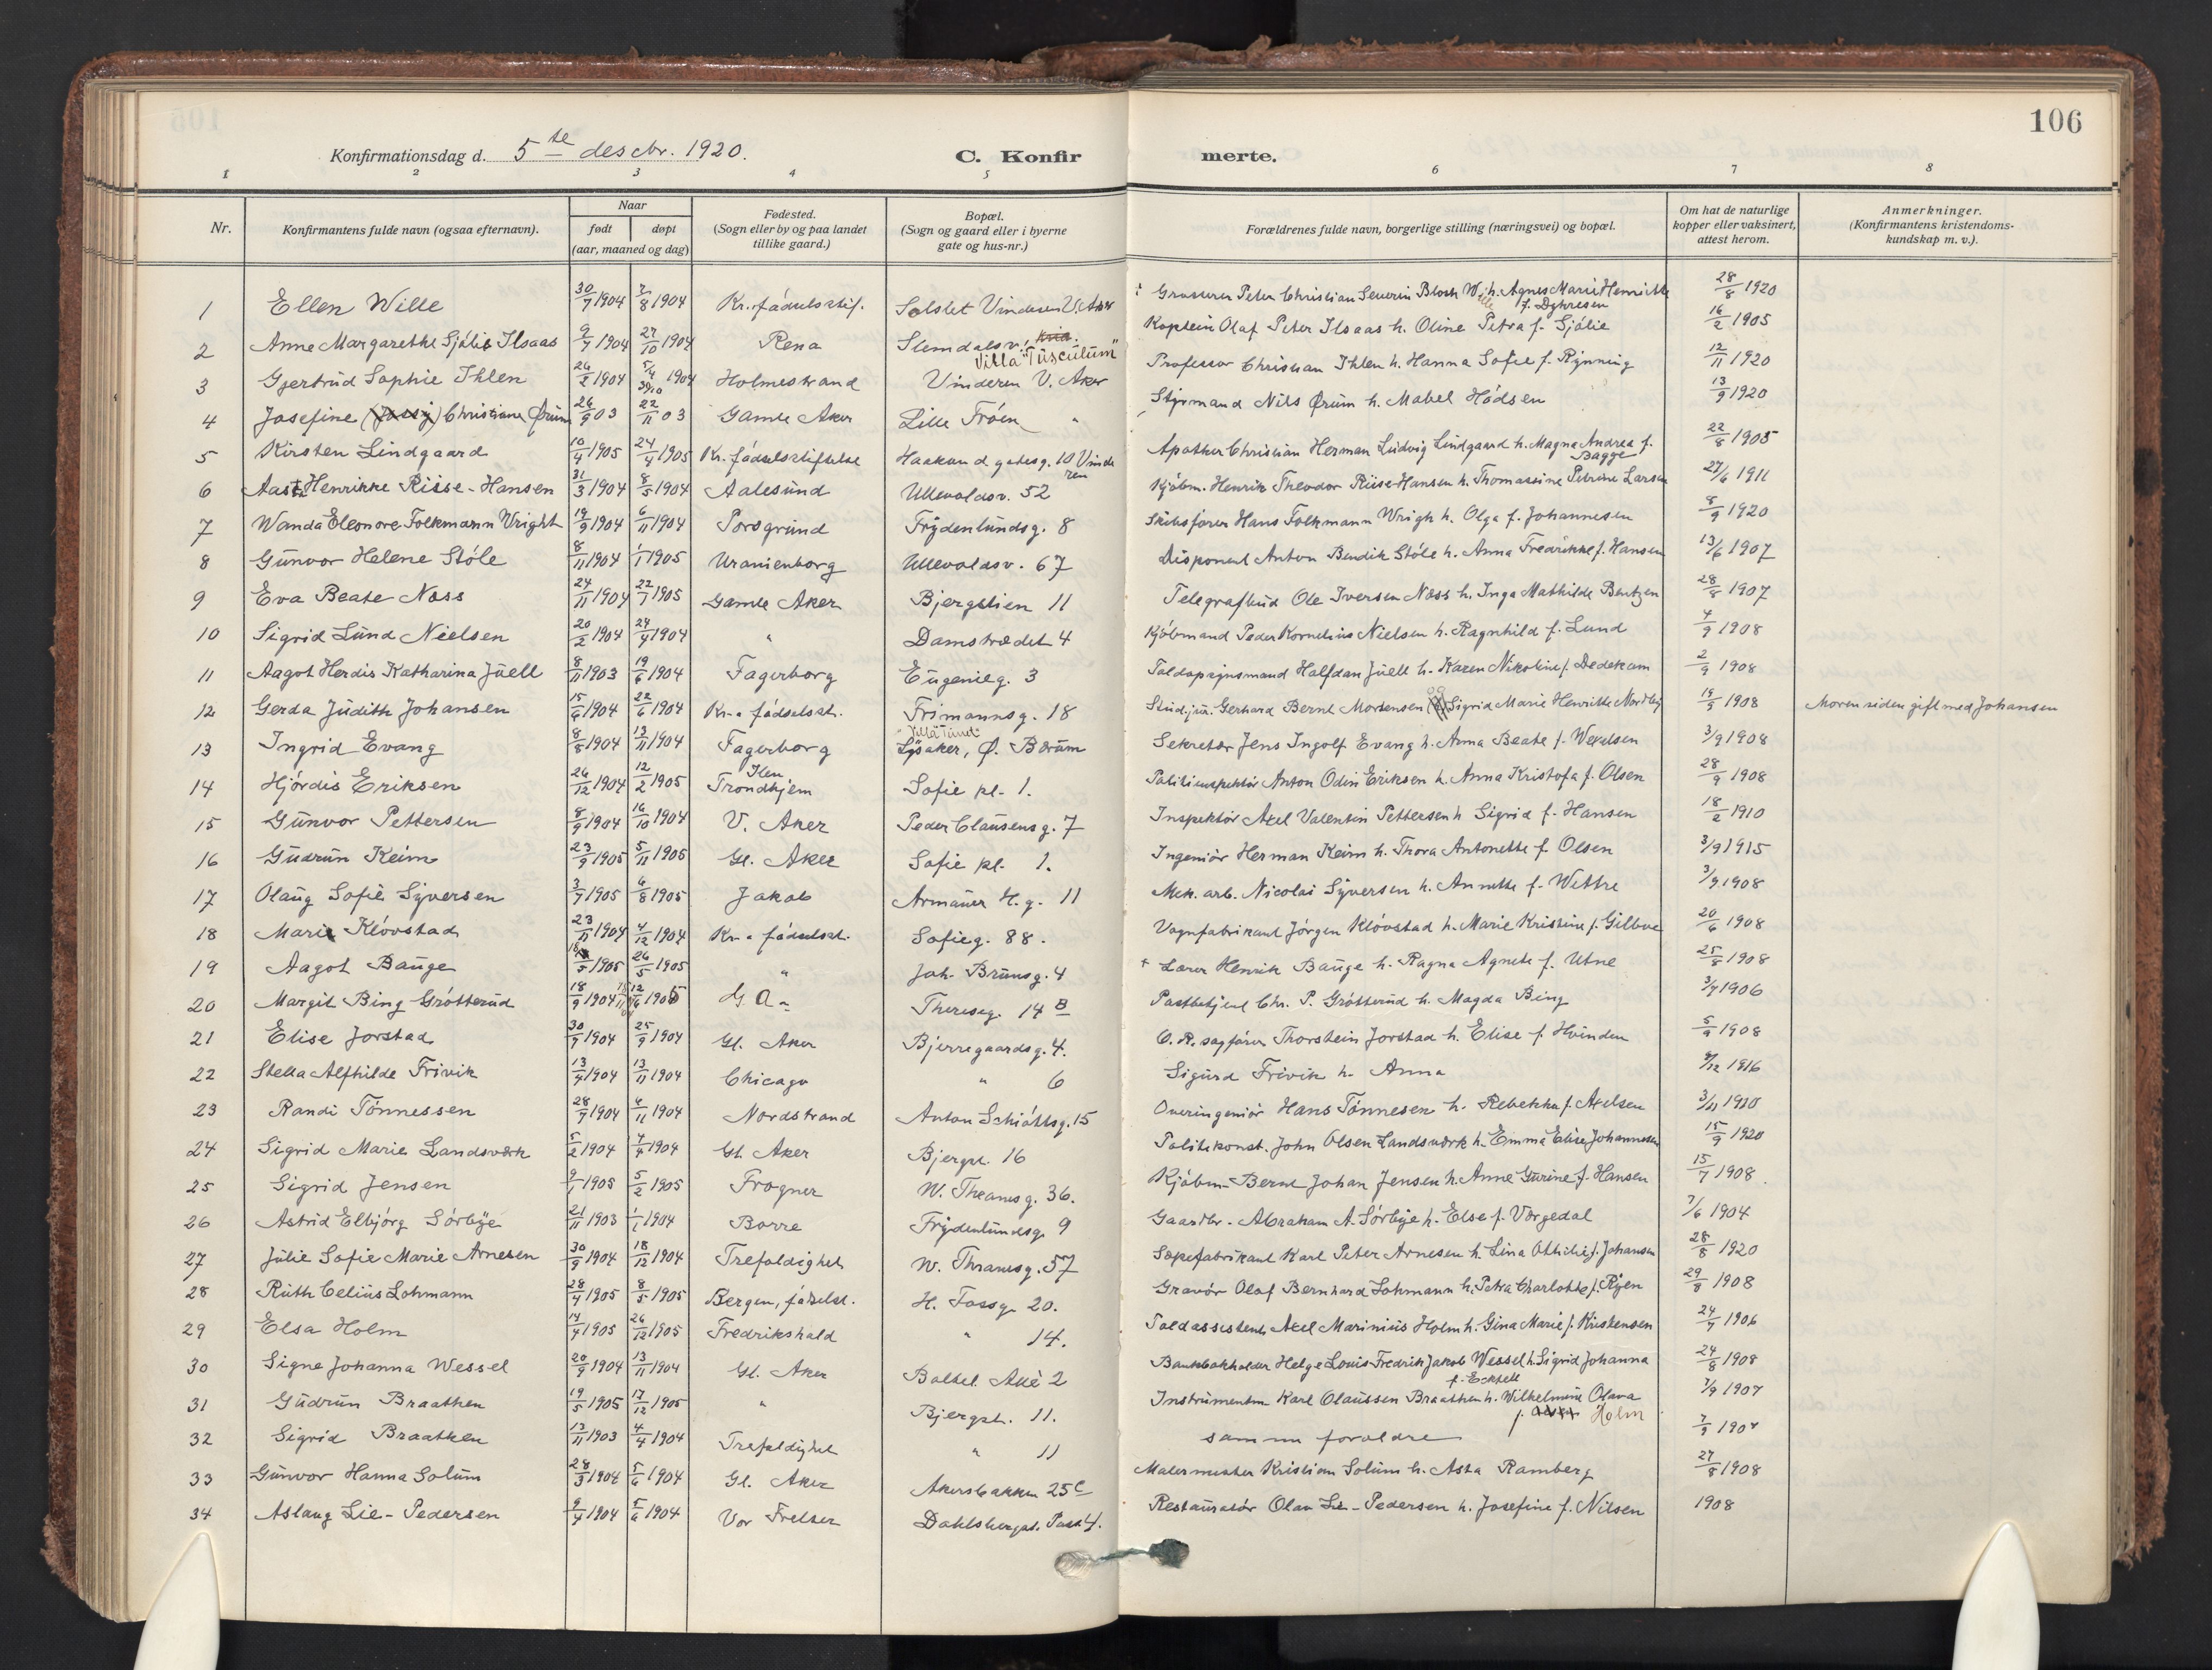 106
Konfirmationsdag d. 5te desebr. 1920.
C. Konfirmerte.
1 2 3 4 5 6 7 8
Nr. | Konfirmantens fulde navn (ogsaa efternavn). | Naar født døpt (aar, maaned og dag) | Fødested. (Sogn eller by og paa landet tillike gaard.) | Bopæl. (Sogn og gaard eller i byerne gate og hus-nr.) | Forældrenes fulde navn, borgerlige stilling (næringsvei) og bopæl. | Om hat de naturlige kopper eller vaksinert, attest herom. | Anmerkninger. (Konfirmantens kristendomskundskap m. v.).
1 Ellen Wille 30/7 1904 7/8 1904 Kr. fødselsstif. Solslet Vinderen V. Aker Grosserer Peter Christian Severin Bloch W. h. Agnes Marie Henriette f. Dyhresen 28/8 1920
2 Anne Margarethe Sjölie Ilsaas 9/7 1904 27/10 1904 Rena Slemdalsv. Villa "Tusculum" Kaptein Olaf Peter Ilsaas h. Oline Petra f. Sjölie 16/2 1905
3 Gjertrud Sophie Ihlen 26/2 1904 5/4 1904 Holmestrand Vinderen V. Aker Professor Christian Ihlen h. Hanna Sofie f. Rynning 12/11 1920
4 Josefine (Jossy) Christiane Ørum 26/9 03 22/11 03 Gamle Aker Lille Fröen " Styrmand Nils Ørum h. Mabel Hödsen 13/9 1920
5 Kirsten Lindgaard 10/4 1905 24/4 1905 Kr. fødselsstiftelse Haakon d godesg. 10 Vinderen Apotker Christian Herman Ludvig Lindgaard h. Magna Andrea f. Bagge 22/8 1905
6 Aasta Henrikke Riise-Hansen 31/3 1904 8/5 1904 Aalesund Ullevoldsv. 52 Kjöbm. Henrik Theodor Riise-Hansen h. Thomassine Petrine Larsen 27/6 1911
7 Wanda Eleonore Folkmann Wright 19/9 1904 6/11 1904 Porsgrund Frydenlundsg. 8 Skibsförer Hans Folkmann Wrigh h. Olga f. Johannesen 8/9 1920
8 Gunvor Helene Stöle 8/11 1904 1/1 1905 Uranienborg Ullevoldsv. 67 Disponent Anton Bendik Stöle h. Anna Fredrikke f. Hansen 13/6 1907
9 Eva Beate Næss 24/11 1904 22/7 1905 Gamle Aker Bjergstien 11 Telegrafbud Ole Iversen Næss h. Inga Mathilde Bentzen 28/8 1907
10 Sigrid Lund Nielsen 20/2 1904 24/4 1904 " Damstrædet 4 Kjöbmand Peder Kornelius Nielsen h. Ragnhild f. Lund 4/9 1908
11 Aagot Herdis Katharina Juell 8/11 1903 19/6 1904 Fagerborg Eugenieg. 3 Toldopsynsmand Halfdan Juell h. Karen Nikoline f. Dedekam 2/9 1908
12 Gerda Judith Johansen 15/6 1904 22/6 1904 Kr-a födselsst. Frimannsg. 18 Stud. jur. Gerhard Bernt Mortensen og Sigrid Marie Henrikke Nordby 15/5 1908 Moren siden gift med Johansen
13 Ingrid Evang 8/8 1904 13/11 1904 Fagerborg "Villa Tund" Lysaker, Ø. Bærum Sekretær Jens Ingolf Evang h. Anna Beate f. Wexelsen 3/9 1908
14 Hjördis Eriksen 26/12 1904 12/2 1905 Ilen Trondhjem Sofie pl. 1. Politiinspektör Anton Odin Eriksen h. Anna Kristofa f. Olsen 28/9 1908
15 Gunvor Pettersen 8/9 1904 16/10 1904 V. Aker Peder Clausensg. 7 Inspektör Axel Valentin Pettersen h Sigrid f. Hansen 18/2 1910
16 Gudrun Keim 23/9 1905 5/11 1905 Gl. Aker Sofie pl. 1. Ingeniör Herman Keim h. Thora Antonette f. Olsen 3/9 1915
17 Olaug Sofie Syversen 3/7 1905 6/8 1905 Jakob Armauer H.g. 11 Mek. arb. Nicolai Syversen h. Annette f. Wettre 3/9 1908
18 Marie Klövstad 23/11 1904 4/12 1904 Kr-a födselsst. Sofieg. 88. Vognfabrikant Jörgen Klövstad h. Marie Kristine f. Gilboe 20/6 1908
19 Aagot Bauge 18/5 1905 26/5 1905 " Joh. Brunsg. 4 + Lærer Henrik Bauge h. Ragna Agnete f. Utne 25/8 1908
20 Margit Bing Grötterud 18/9 1904 1905 G. A- Theresesg. 14 B Postbetjent Chr. P. Grötterud h. Magda Bing 3/9 1906
21 Elise Jorstad 30/7 1904 25/9 1904 Gl. Aker Bjerregaardsg. 4. O. R. sagförer Thorstein Jorstad h. Elise f. Hvinden 5/9 1908
22 Stella Alfhilde Frivik 13/9 1904 13/11 1904 Chicago " 6 Sigurd Frivik h. Anna 9/12 1916
23 Randi Tönnessen 28/7 1904 6/11 1904 Nordstrand Anton Schiöttsg. 15 Overingeniör Hans Tönnesen h. Rebekka f. Axelsen 3/11 1910
24 Sigrid Marie Landsværk 5/2 1904 4/4 1904 Gl. Aker Bjergst. 16 Politikonst. John Olsen Landsværk h. Emma Elise Johannesen 15/9 1920
25 Sigrid Jensen 9/1 1905 5/2 1905 Frogner W. Thranesg. 36. Kjöbm- Bernt Johan Jensen h. Anne Gurine f. Hansen 15/7 1908.
26 Astrid Elbjörg Sörbye 21/11 1903 1/1 1904 Borre Frydenlundsg 9 Gaardbr. Abraham A. Sörbye h. Else f. Værgedal 7/6 1904
27 Julie Sofie Marie Arnesen 30/9 1904 18/12 1904 Trefoldighet W. Thranesg. 57 Sæpefabrikant Karl Peter Arnesen h. Lina Ottilie f. Johansen 28/8 1920
28 Ruth Celius Lohmann 28/4 1905 8/5 1905 Bergen, födselst. H. Fossg 20. Gravör Olaf Bernhard Lohmann h. Petra Charlotte f. Ryen 29/8 1908
29 Elsa Holm 14/9 1905 26/12 1905 Fredrikshald " 14. Toldassistent Axel Marinius Holm h. Gina Marie f. Kristensen 24/7 1906
30 Signe Johanna Wessel 20/9 1904 13/11 1904 Gl. Aker Boltel. Alé 2 Bankbokholder Helge Louis Fredrik Jakob Wessel h. Sigrid Johanna f. Eckhell 24/8 1908
31 Gudrun Braathen 19/5 1905 17/12 1905 " Bjergst. 11. Instrumentm Karl Olaussen Braathen h. Wilhelmine Olava f. Holm 7/9 1907
32 Sigrid Braathen 13/11 1903 4/4 1904 Trefoldighet " 11 samme forældre 7/9 1907
33 Gunvor Hanna Solum 28/3 1904 5/6 1904 Gl. Aker Akersbakken 25 C Malermester Kristian Solum h. Asta Ramberg 27/8 1908
34 Aslaug Lie-Pedersen 9/4 1904 5/6 1904 Vor Frelser Dahlsbergst. Pass. 4. Restauratör Olav Lie-Pedersen h. Josefine f. Nilsen 1908